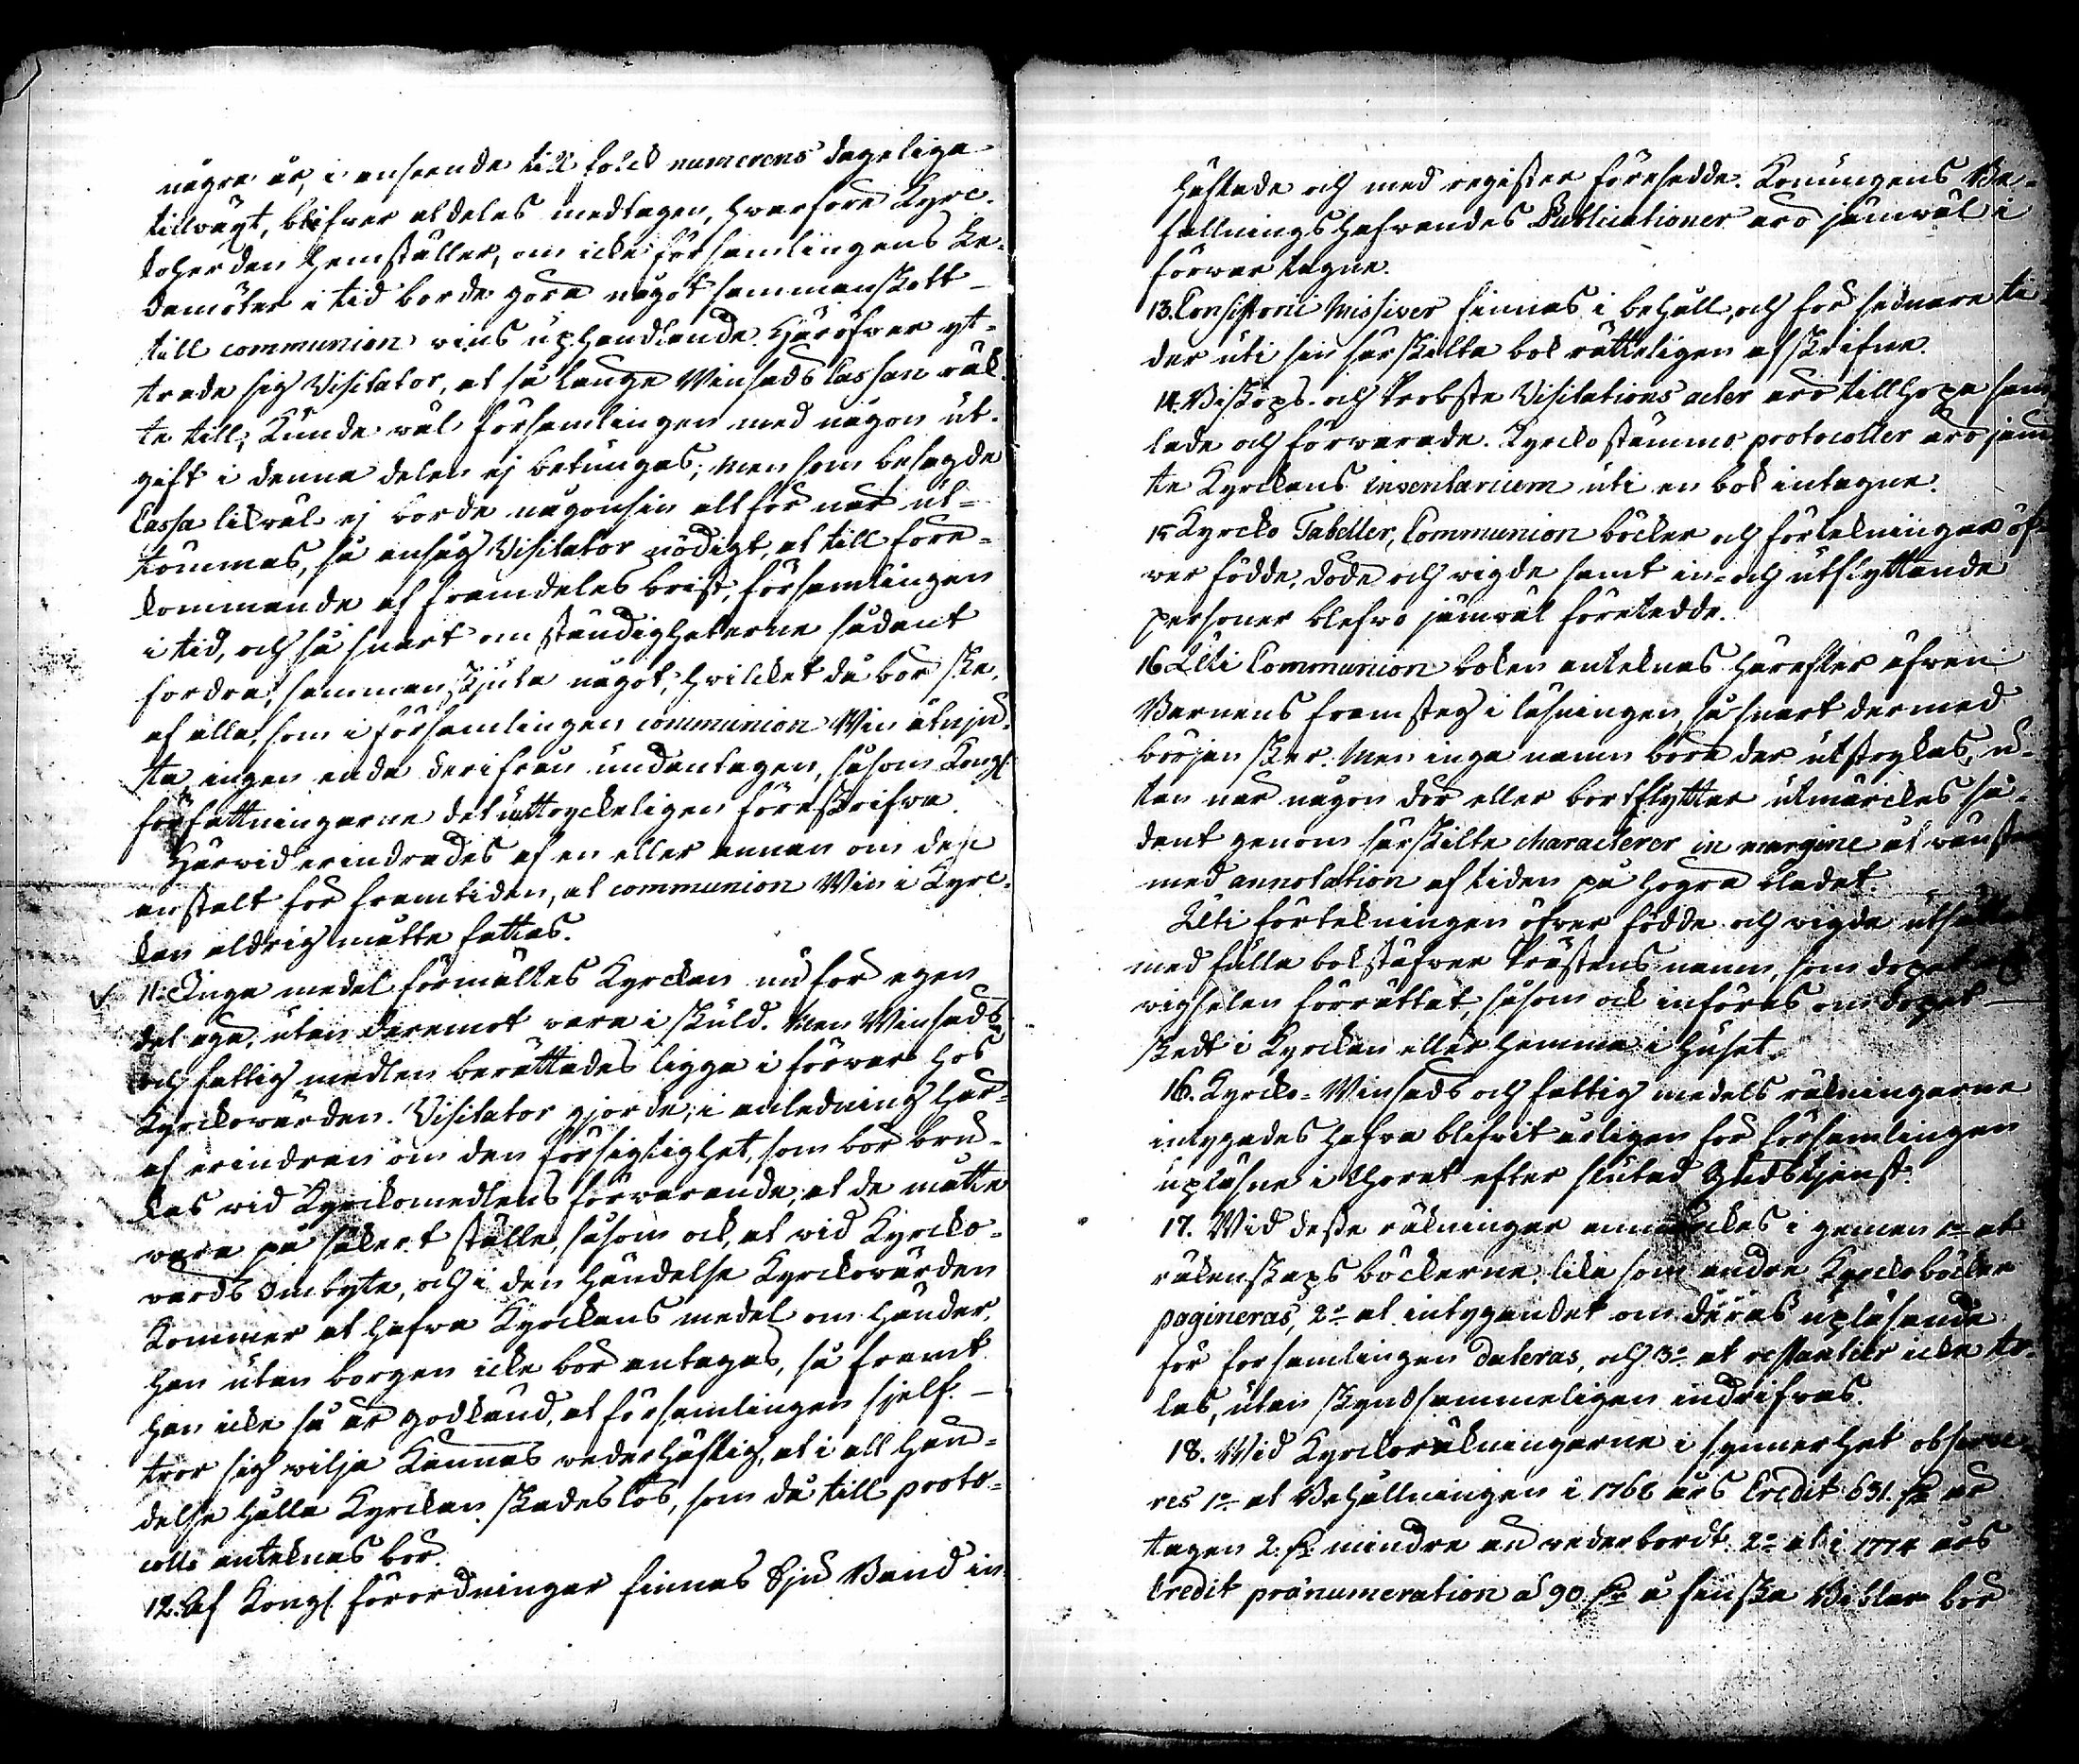 några år, i anseende till folck numerens dageliga
tillväxt, blifver aldeles medtagen, hvarföre Kyrc-
koherden hemställer, om icke församlingens Le-
damöter i tid borde göra något sammanskott
till communion vins uphandlande. Häröfver yt-
trade sig Visitator, at så länge Winsäds Cassan räk-
te till, kunde väl församlingen med någon ut-
gift i denna delen ej betungas; men som besagde
Cassa likväl ej borde någonsin allt för när ut-
tömmas, så ansåg Visitator nödigt, at till före-
kommande af framdeles brist, församlingen
i tid, och så snart omständigheterne sådant
fordra, sammanskjuta något, hvilcket då bör ske,
af alla, som i församlingen communion Win åtnju-
ta, ingen enda derifrån undantagen, såsom Kongl.
författningarne det uttryckeligen föreskrifva.
Härvid erindrades af en eller annan om dess
anstalt för framtiden, at communion Win i Kyrc-
kan aldrig måtte fattas.
11. Inga medel förmältes Kyrckan nu för egen
del äga, utan deremot vara i skuld. Men Winsäds
och fattig medlen berättades ligga i förvar hos
Kyrckovärden. Visitator gjorde, i anledning här-
af erindran om den försigtighet, som bör bru-
kas vid Kyrckomedlens förvarande, at de måtte
vara på säkert ställe, såsom ock, at vid Kyrcko-
värds ombyte, och i den händelse Kyrckovärden
kommer at hafva Kyrckans medel om händer,
han utan borgen icke bör antagas, så framt
han icke så är godkänd, at församlingen sjelf
tror sig vilja kännas vederhäftig, at i all hän-
delse hålla Kyrckan skadeslös, som då till proto-
colls anteknas bör.
12. Af Kongl. förordningar finnas sju Band in-
häftade och med register försedde. Konungens Be-
fallningshafvandes Publicationer äro jämväl i
förvar tagne.
13. Consistorii Missiver finnas i behåll, och för sednare ti-
der uti sin särskilta bok rätteligen afskrifne.
14. Biskops- och Probste Visitations acter äro tillhopa sam-
lade och förvarade. Kyrckostämmo protocoller äro jäm-
te Kyrckans inventarium uti en bok intagne.
15 Kyrcko Tabeller, Communion böcker och förtekningar öf-
ver födde, döde och vigde samt in- och utflyttande
personer blefvo jämväl företedde.
16 Uti Communion boken anteknas härefter äfven
Barnens framsteg i läsningen, så snart dermed
början sker. Men inga namn böra der utstrykas, u-
tan när någon dör eller bortflyttar utmärckes så-
dant genom särskilte characterer in margine åt vänster
med annotation af tiden på högra bladet.
Uti förtekningen öfver födde och vigde utsättes
med fulla bokstäfver Prästens namn, som dopet och
vigselen förrättat, såsom ock införes om dopet
skedt i Kyrckan eller hemma i huset.
16. Kyrcko- Winsäds och fattig medels räkningarne
intygades hafva blifvit årligen för församlingen
upläsne i Choret efter slutad Gudstjenst.
17. Vid desse räkningar anmärckes i gemen 1o at
räkenskaps böckerne, lika som andre Kyrckoböcker
pagineras, 2o at intygandet om deras upläsande
för församlingen dateras, och 3o at restantier icke to-
las, utan skyndsammeligen indrifvas.
18. Vid Kyrckoräkningarne i synnerhet observe-
res 1o at Behållningen i 1768 års Credit 631. är
tagen 2. mindre än vederbordt. 2o at i 1774 års
Credit pränumeration à 90 å finska Biblar bör